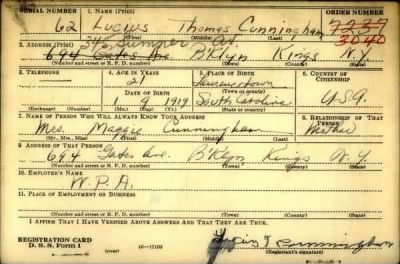 SERIAL NUMBER 1. NAME (Print) ORDER NUMBER
62 Lucius Thomas Cunningham
3040
345 Sumner Av
2. ADDRESS (Print)
694 Gates Ave. B'klyn Kings N.Y.
(Number and street or R. F. D. number) (Town) (County) (State)
3. TELEPHONE 4. AGE IN YEARS 5. PLACE OF BIRTH 6. COUNTRY OF CITIZENSHIP
21
DATE OF BIRTH (Town or county)
1 9 1919 South Carolina U.S.A
(Exchange) (Number) (Mo.) (Day) (Yr.) (State or country)
7. NAME OF PERSON WHO WILL ALWAYS KNOW YOUR ADDRESS 8. RELATIONSHIP OF THAT PERSON
Mrs. Maggie Cunningham Mother
(Mr., Mrs., Miss) (First) (Middle) (Last)
9. ADDRESS OF THAT PERSON
694 Gates Ave. B'klyn Kings N.Y.
(Number and street or R. F. D. number) (Town) (County) (State)
10. EMPLOYER'S NAME
W.P.A.
11. PLACE OF EMPLOYMENT OR BUSINESS
(Number and street or R. F. D. number) (Town) (County) (State)
I AFFIRM THAT I HAVE VERIFIED ABOVE ANSWERS AND THAT THEY ARE TRUE.
REGISTRATION CARD
D. S. S. Form 1 (over) 16—17105
Lucius T Cunningham
(Registrant's signature)